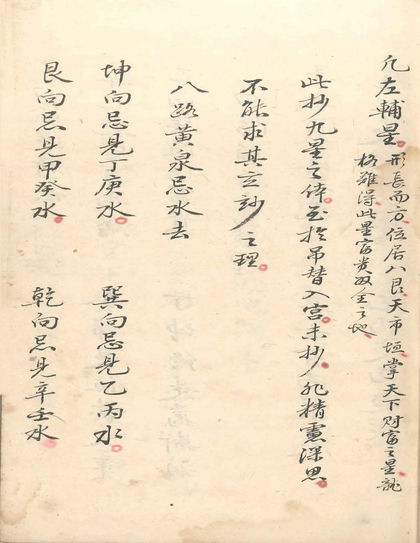 凢左輔星。形長而方位居八艮天市垣掌天下财富之星龍
格难得。此星富贵双全之地
此抄九星之体。至於吊替入宫。未抄。非精虑深思
不能求其玄妙之理
八路黄泉忌水去
坤向忌見丁庚水。
巽向忌見乙丙水。
艮向忌見甲癸水。
乾向忌見辛壬水